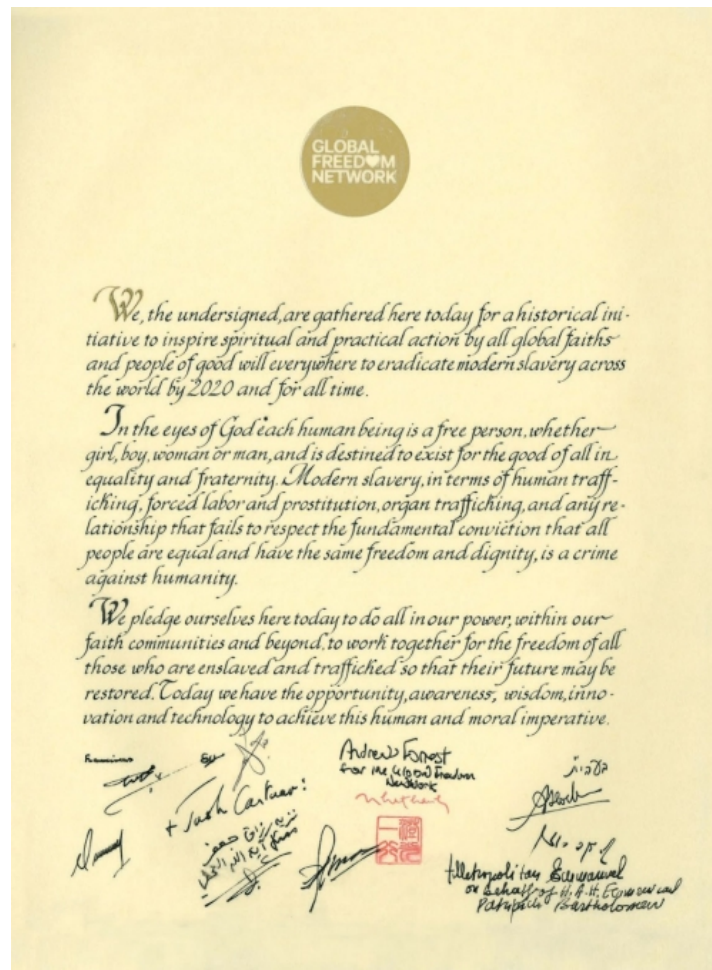 GLOBAL
FREEDOM
NETWORK
We, the undersigned, are gathered here today for a historical ini-
tiative to inspire spiritual and practical action by all global faiths
and people of good will everywhere to eradicate modern slavery across
the world by 2020 and for all time.
In the eyes of God each human being is a free person, whether
girl, boy, woman or man, and is destined to exist for the good of all in
equality and fraternity. Modern slavery, in terms of human traff-
icking, forced labor and prostitution, organ trafficking, and any re-
lationship that fails to respect the fundamental conviction that all
people are equal and have the same freedom and dignity, is a crime
against humanity.
We pledge ourselves here today to do all in our power, within our
faith communities and beyond, to work together for the freedom of all
those who are enslaved and trafficked so that their future may be
restored. Today we have the opportunity, awareness, wisdom, inno-
vation and technology to achieve this human and moral imperative.
Franciscus
Andrew Forrest
for the Global Freedom
Network
+ Justin Cantuar:
+Metropolitan Emmanuel
on behalf of H.A.H. Ecumenical
Patriarch Bartholomew